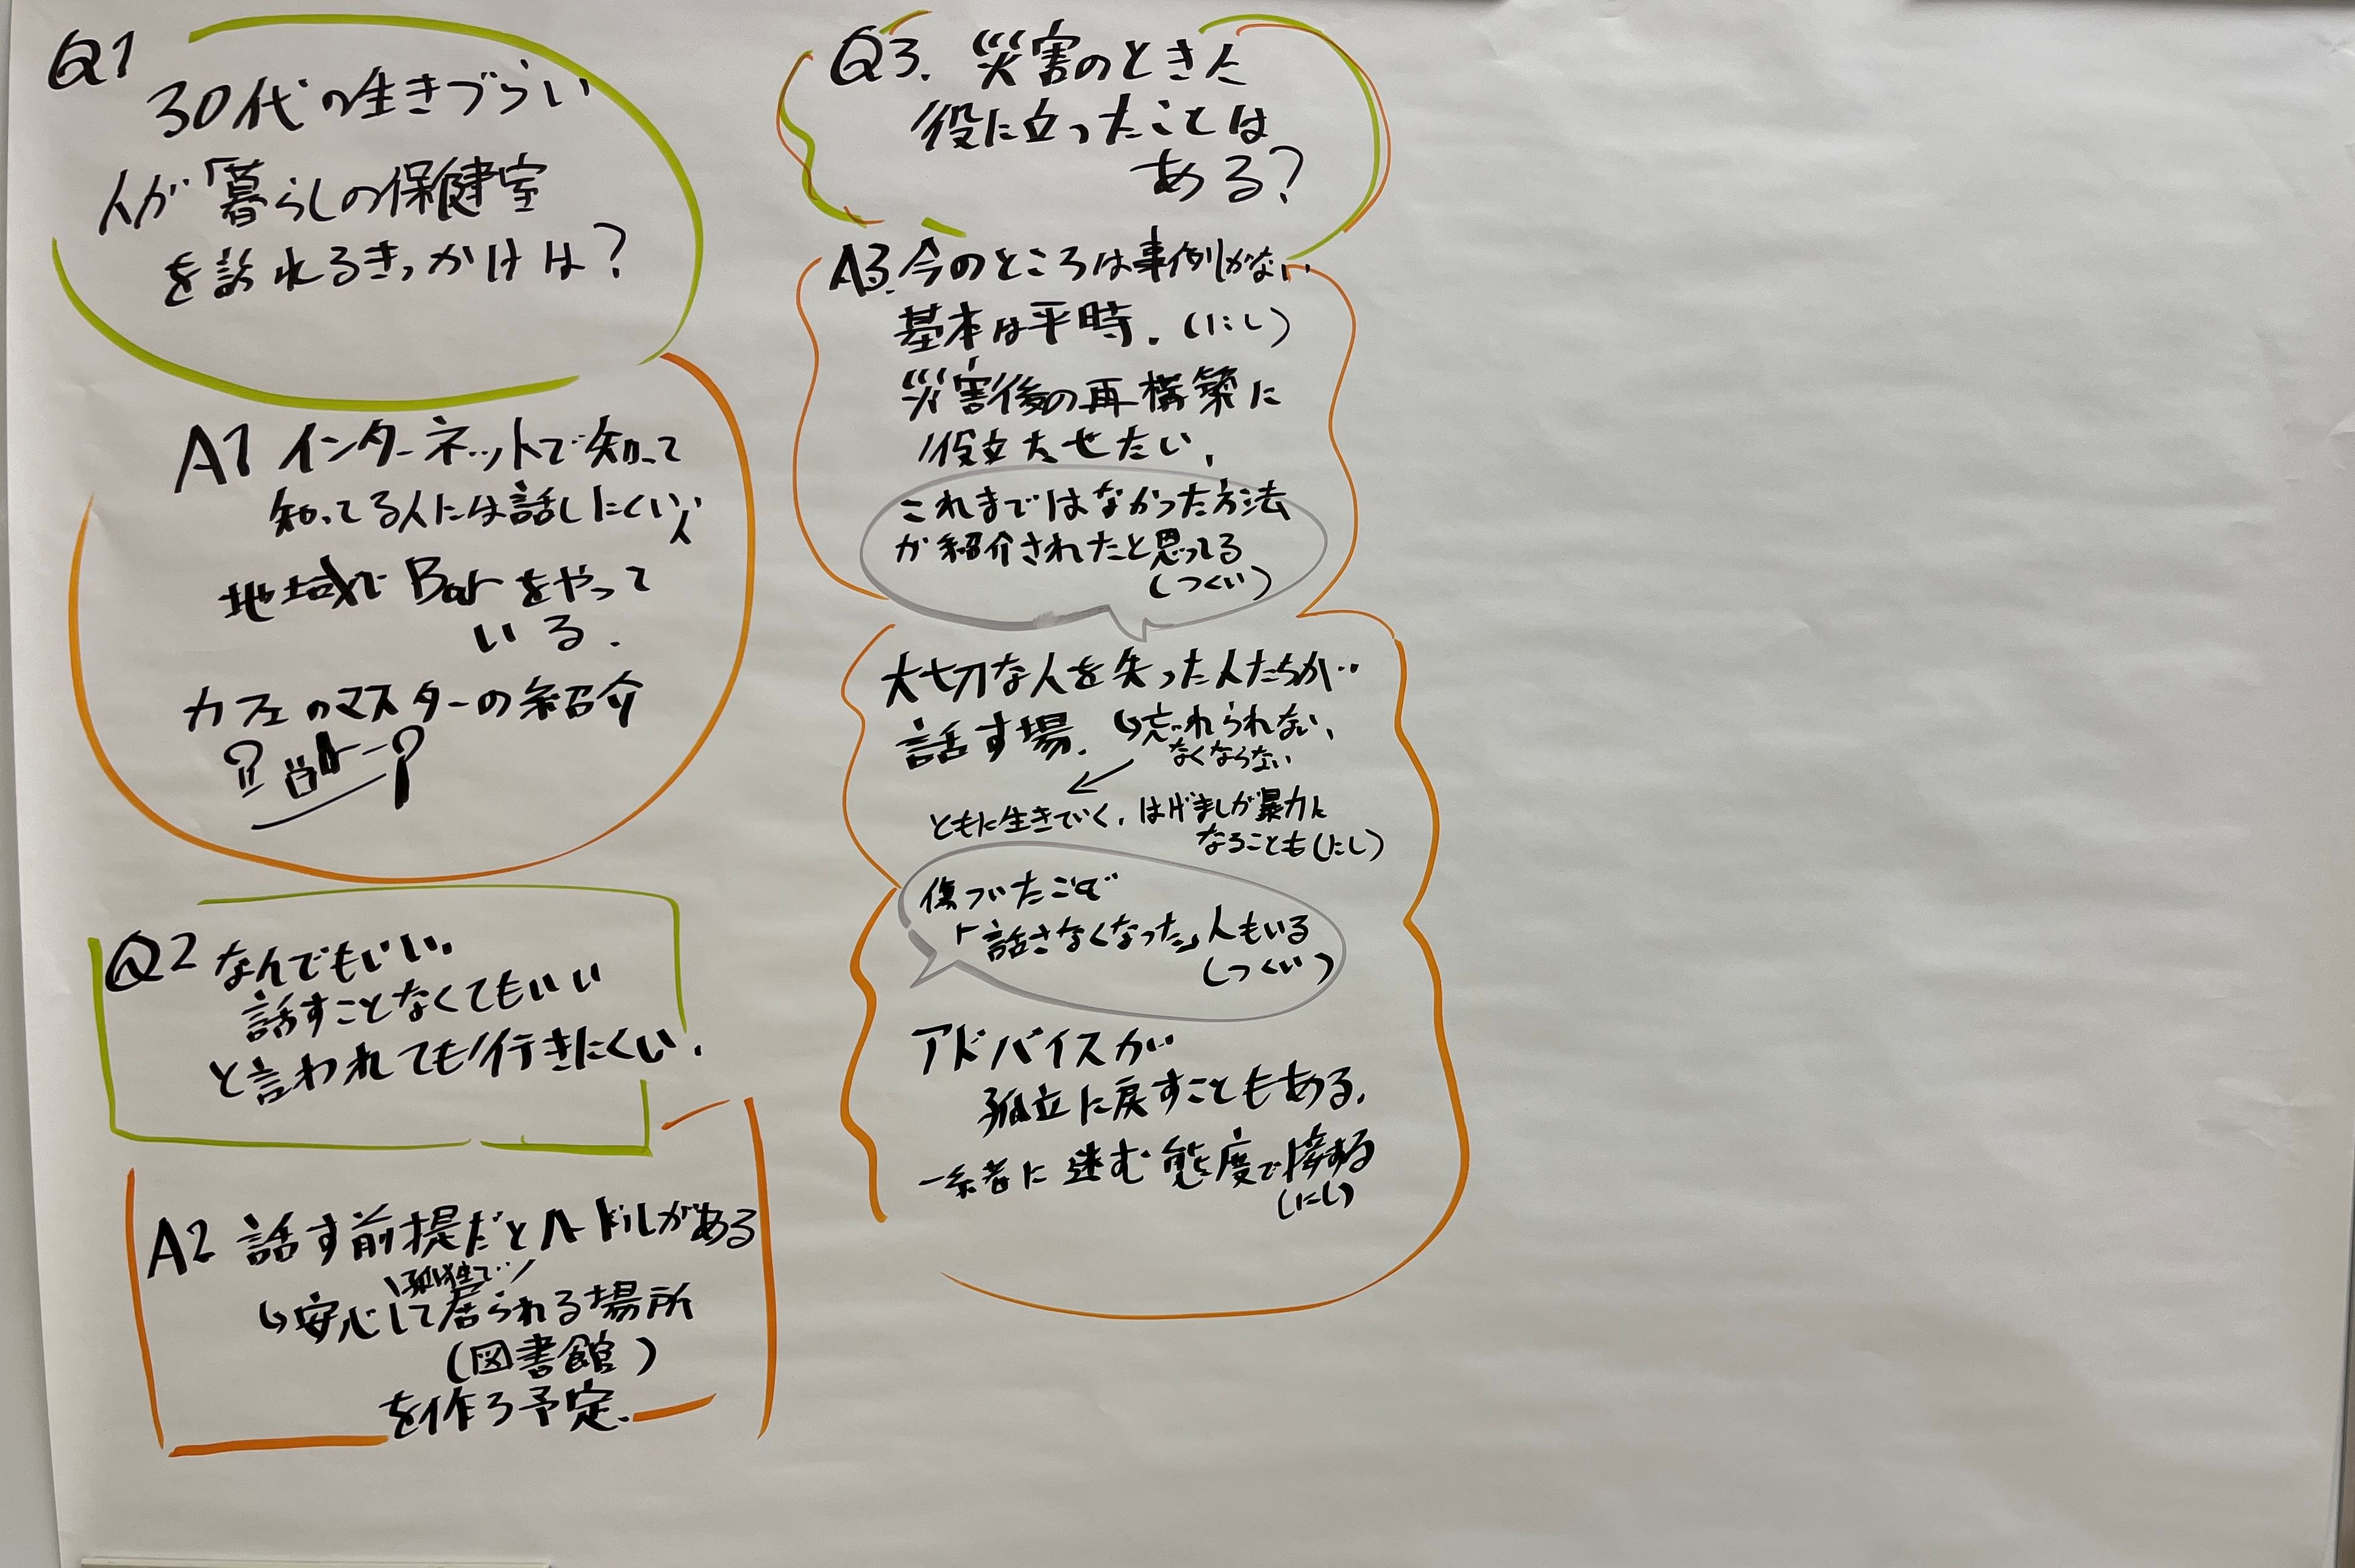 Q1
30代の生きづらい
人が「暮らしの保健室
を訪れるきっかけは?
A1 インターネットで知って
知ってる人には話しにくい人
地域でBarをやって
いる.
カフェのマスターの紹介
Q2 なんでもいい.
話すことなくてもいい
と言われても行きにくい.
A2 話す前提だとハードルがある
↳安心して居られる場所
(図書館)
を作る予定.
Q3. 災害のときに
役に立ったことは
ある?
A3. 今のところは事例がない
基本は平時.(にし)
災害後の再構築に
役立たせたい.
これまではなかった方法
が紹介されたと思ってる
(つくい)
大切な人を失った人たちが
話す場. ↳忘れられない、
なくならない
ともに生きていく. はげましが暴力に
なることも(にし)
傷ついたことで
「話さなくなった」人もいる
(つくい)
アドバイスが
孤立に戻すこともある.
一緒に 態度で接する
(にし)